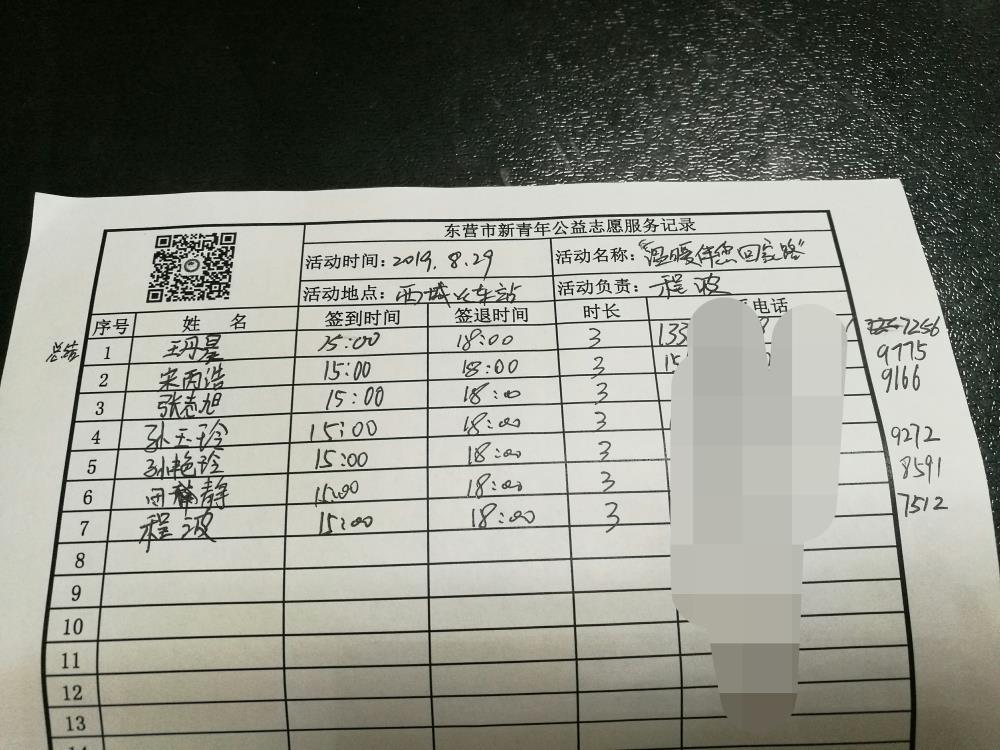 东营市新青年公益志愿服务记录
活动时间：2019.8.29 活动名称："温暖伴您回家路"
活动地点：西城火车站 活动负责：程波
序号 姓 名 签到时间 签退时间 时长 电话
总结 1 王丹星 15:00 18:00 3 133 7256
2 宋丙浩 15:00 18:00 3 15 9775
3 张志旭 15:00 18:00 3 9166
4 孙玉玲 15:00 18:00 3
5 孙艳玲 15:00 18:00 3 9272
6 田 静 15:00 18:00 3 8591
7 程波 15:00 18:00 3 7512
8
9
10
11
12
13